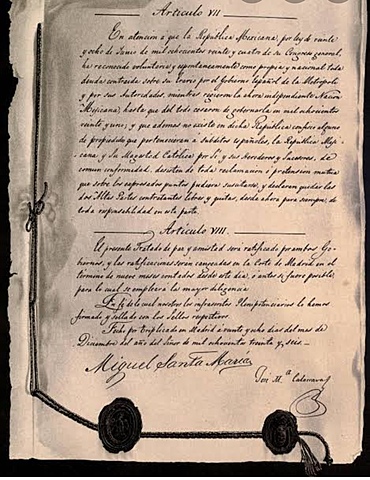 Articulo VII
En atencion a que la Republica Mexicana, por ley de veinte
y ocho de Junio de mil ochocientos veinte y cuatro de su Congreso general,
ha reconocido voluntaria y espontaneamente como propia y nacional toda
deuda contraida sobre su Erario por el Gobierno Español de la Metropoli
y por sus Autoridades, mientras rigieron la ahora independiente Nacion
Mexicana, hasta que del todo cesaron de gobernarla en mil ochocientos
veinte y uno; y que ademas no existe en dicha Republica confisco alguno
de propiedades que pertenecieran a subditos españoles, la Republica Meji
cana y Su Magestad Catolica por Si y sus Herederos y Sucesores, de
comun conformidad, desisten de toda reclamacion o pretension mutua
que sobre los expresados puntos pudiera suscitarse, y declaran quedar las
dos Altas Partes contratantes libres y quitas, desde ahora para siempre, de
toda responsabilidad en esta parte.
Articulo VIII.
El presente Tratado de paz y amistad será ratificado por ambos Go
biernos, y las ratificaciones serán cangeadas en la Corte de Madrid en el
termino de nueve meses contados desde este dia, o antes si fuere posible,
para lo cual se empleará la mayor diligencia.
En fé de lo cual nosotros los infrascritos Plenipotenciarios lo hemos
firmado y sellado con los Sellos respectivos.
Fecho por triplicado en Madrid á veinte y ocho dias del mes de
Diciembre del año del Señor de mil ochocientos treinta y seis.
Miguel Santa María
José M.ª Calatrava